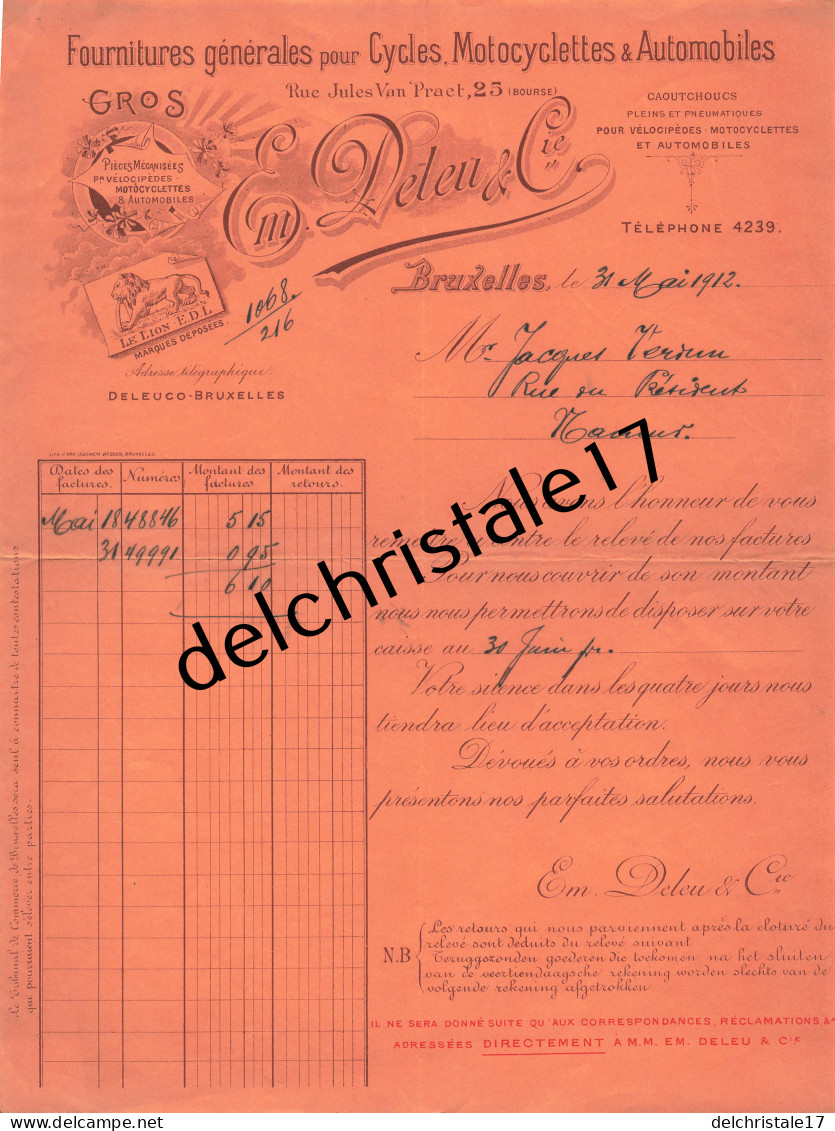 Fournitures générales pour Cycles, Motocyclettes & Automobiles
Rue Jules Van Praet, 25 (BOURSE)
GROS
Em. Deleu & Cie
CAOUTCHOUCS
PLEINS ET PNEUMATIQUES
POUR VÉLOCIPÈDES - MOTOCYCLETTES
ET AUTOMOBILES
PIÈCES MÉCANISÉES
PR VÉLOCIPÈDES
MOTOCYCLETTES
& AUTOMOBILES
TÉLÉPHONE 4239.
LE LION - E.D.L
MARQUES DÉPOSÉES.
1068
216
Bruxelles, le 31 Mai 1912.
Adresse télégraphique:
DELEUCO-BRUXELLES
Mr Jacques
Rue du Président
Namur.
Dates des factures. Numéros Montant des factures Montant des retours.
Mai 18 48846 5 15
31 49991 0 95
6 10
Nous avons l'honneur de vous
remettre ci contre le relevé de nos factures
Pour nous couvrir de son montant
nous nous permettrons de disposer sur votre
caisse au 30 Juin pr.
Votre silence dans les quatre jours nous
tiendra lieu d'acceptation.
Dévoués à vos ordres, nous vous
présentons nos parfaites salutations.
Em. Deleu & Cie
N.B
Les retours qui nous parviennent après la cloturé du
relevé sont déduits du relevé suivant
Teruggezonden goederen die toekomen na het sluiten
van de veertiendaagsche rekening worden slechts van de
volgende rekening afgetrokken.
IL NE SERA DONNÉ SUITE QU'AUX CORRESPONDANCES, RÉCLAMATIONS, &a
ADRESSÉES DIRECTEMENT A M.M. EM. DELEU & CIE
Le Tribunal de Commerce de Bruxelles sera seul à connaître de toutes contestations
qui pourraient s'élever entre parties.
delchristale17
DELCAMPE.NET
delchristale17